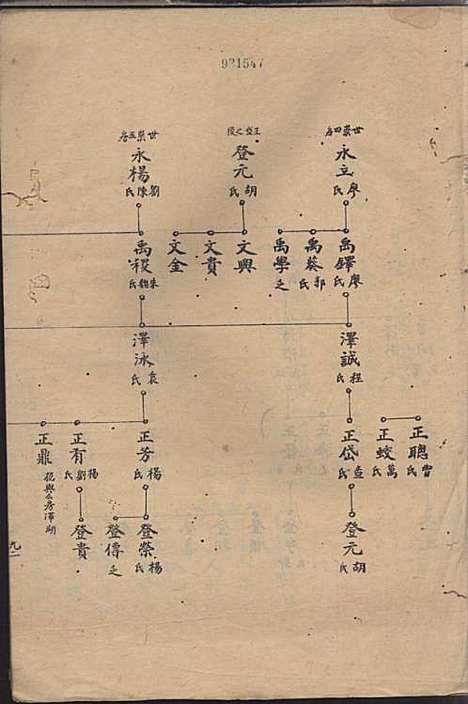 921547
世崇四房
永立
廖氏
禹鐸
廖氏
禹葵
郭氏
禹學
之
澤誠
程氏
正聰
曾氏
正蛟
萬氏
正岱
查氏
登元
胡氏
登元
胡氏
文興
文貴
文金
世崇五房
永楊
劉陳氏
禹稷
澤泳
袁氏
正芳
楊氏
正有
楊劉氏
正鼎
登榮
楊氏
登傳
之
登貴
九一